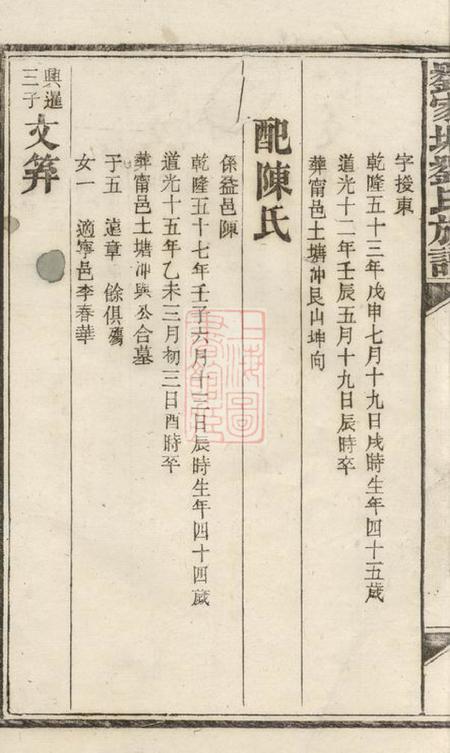 劉家塅劉氏族譜
字援東
乾隆五十三年戊申七月十九日戌時生年四十五歲
道光十二年壬辰五月十九日辰時卒
葬甯邑土塘冲艮山坤向
配陳氏
係益邑陳
乾隆五十七年壬子六月十三日辰時生年四十四歲
道光十五年乙未三月初三日酉時卒
葬甯邑土塘冲與公合墓
子五 遠章 餘俱殤
女一 適寧邑李春華
興暹
三子
文筭
上海圖書館藏